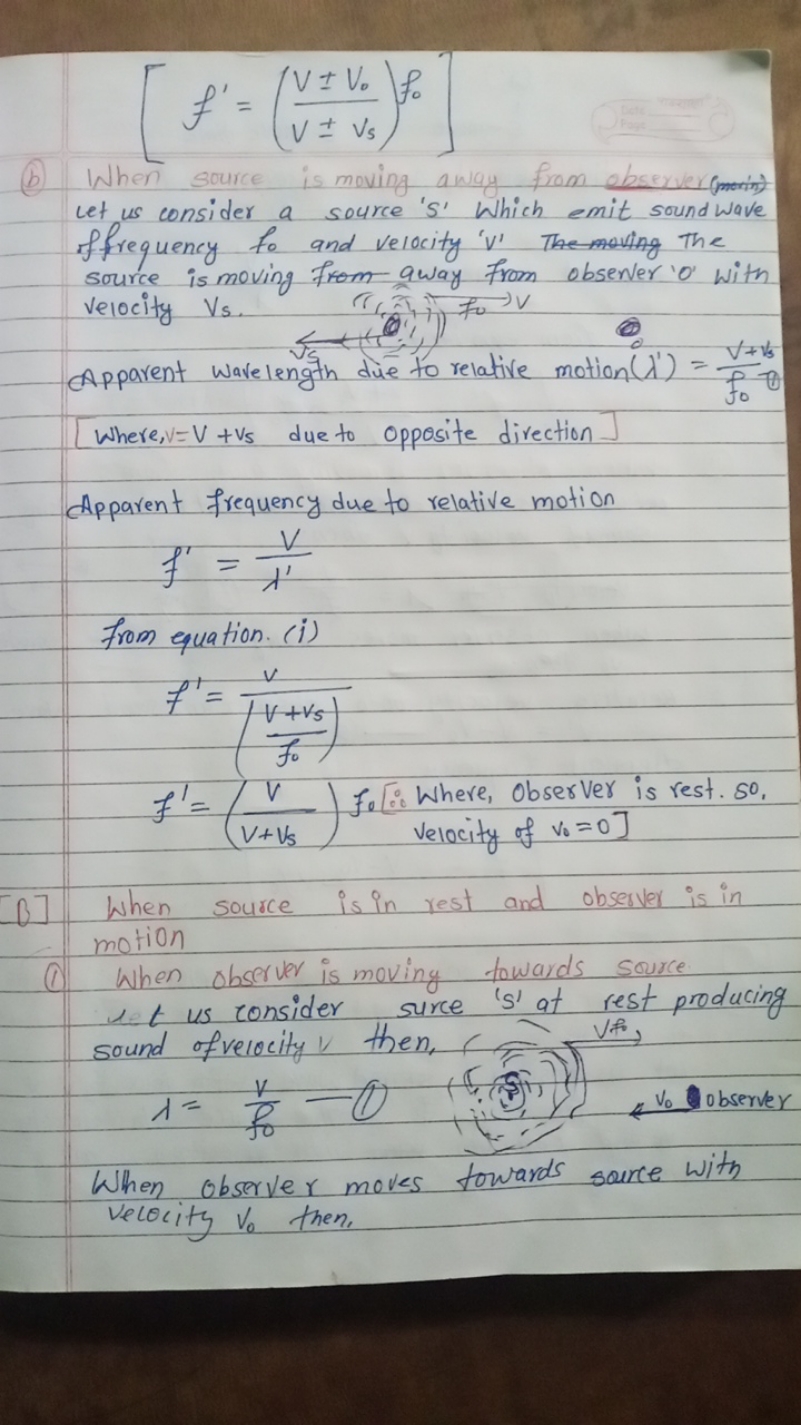 [ f' = (V ± V₀ / V ± Vs) f₀ ]
Date
Page
(b) When source is moving away from observer
Let us consider a source 'S' Which emit sound wave
of frequency f₀ and velocity 'V' The moving The
source is moving from away from observer 'O' with
velocity Vs.
f₀ → V
Vs
O
Apparent wavelength due to relative motion (λ') = V+Vs / f₀ —①
[Where, v = V + Vs due to opposite direction]
Apparent frequency due to relative motion
f' = V / λ'
from equation. (i)
f' = V / (V+Vs / f₀)
f' = (V / V+Vs) f₀ [∵ Where, Observer is rest. so,
velocity of v₀ = 0]
[B] When source is in rest and observer is in
motion
① When observer is moving towards source
Let us consider surce 'S' at rest producing
sound of velocity v then,
V f₀
S
λ = V / f₀ —①
V₀ observer
When observer moves towards source with
velocity V₀ then,